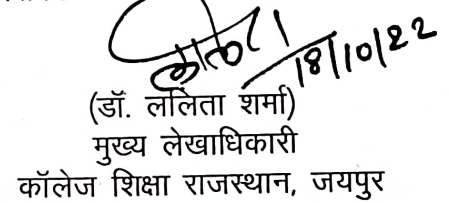 18/10/22
(डॉ. ललिता शर्मा)
मुख्य लेखाधिकारी
कॉलेज शिक्षा राजस्थान, जयपुर